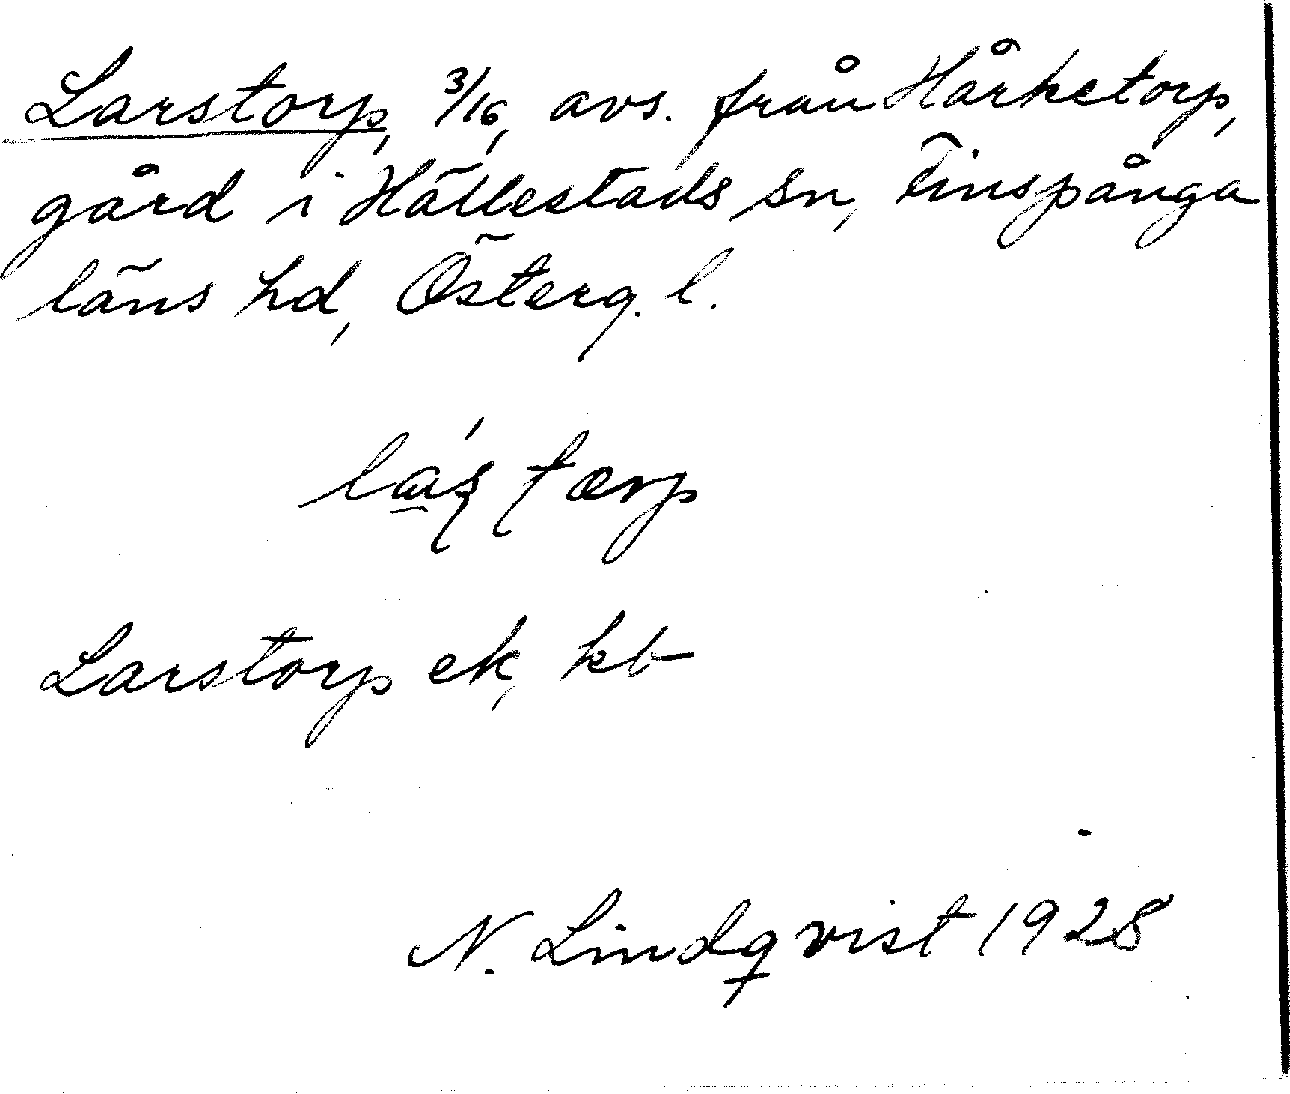 Larstorp, 3/16, avs. från Hårketorp,
gård i Hällestads sn, Finspånga
läns hd, Österg. l.
Larstorp ek, kb
N. Lindqvist 1928